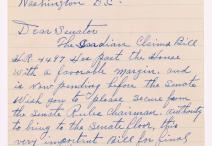 Washington D.C.
Dear Senator
The Indian Claims Bill
H.R. 4497 Has past the House
with a favorable margin, and
is now pending before the Senate
Wish you to please secure from
the Senate Rules Chairman, authority
to bring to the Senate floor, this
very important Bill for final